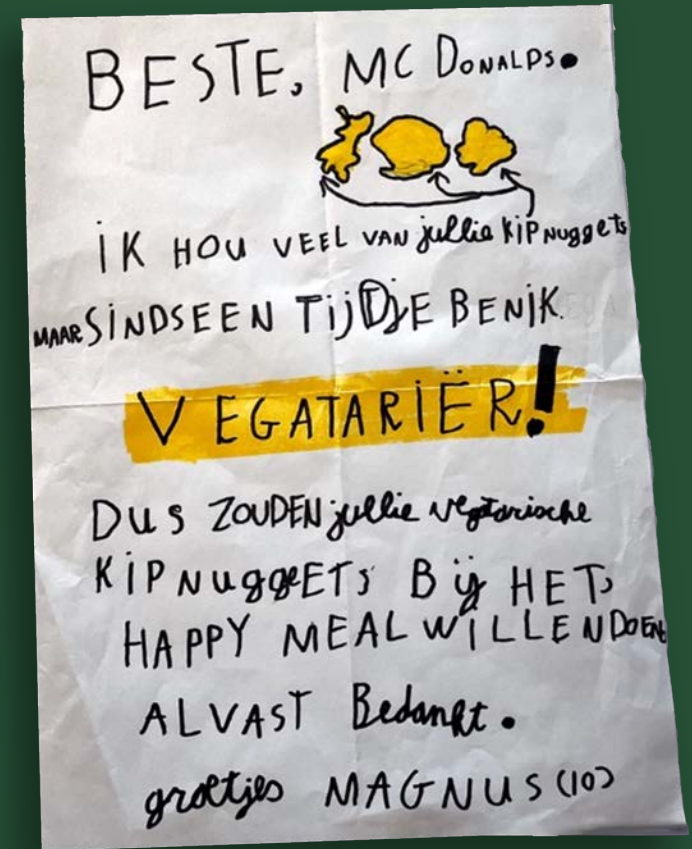 BESTE, MC DONALPS.
iK HOU VEEL VAN jullie KiPNuggets
MAAR SiNDSEEN TijDjE BENiK
VEGATARiËR!
Dus ZOUDEN jullie vegtarische
KiPNuggETs Bij HET
HAPPY MEAL WiLLENDOEN
ALVAST Bedankt.
groetjes MAGNUS (10)